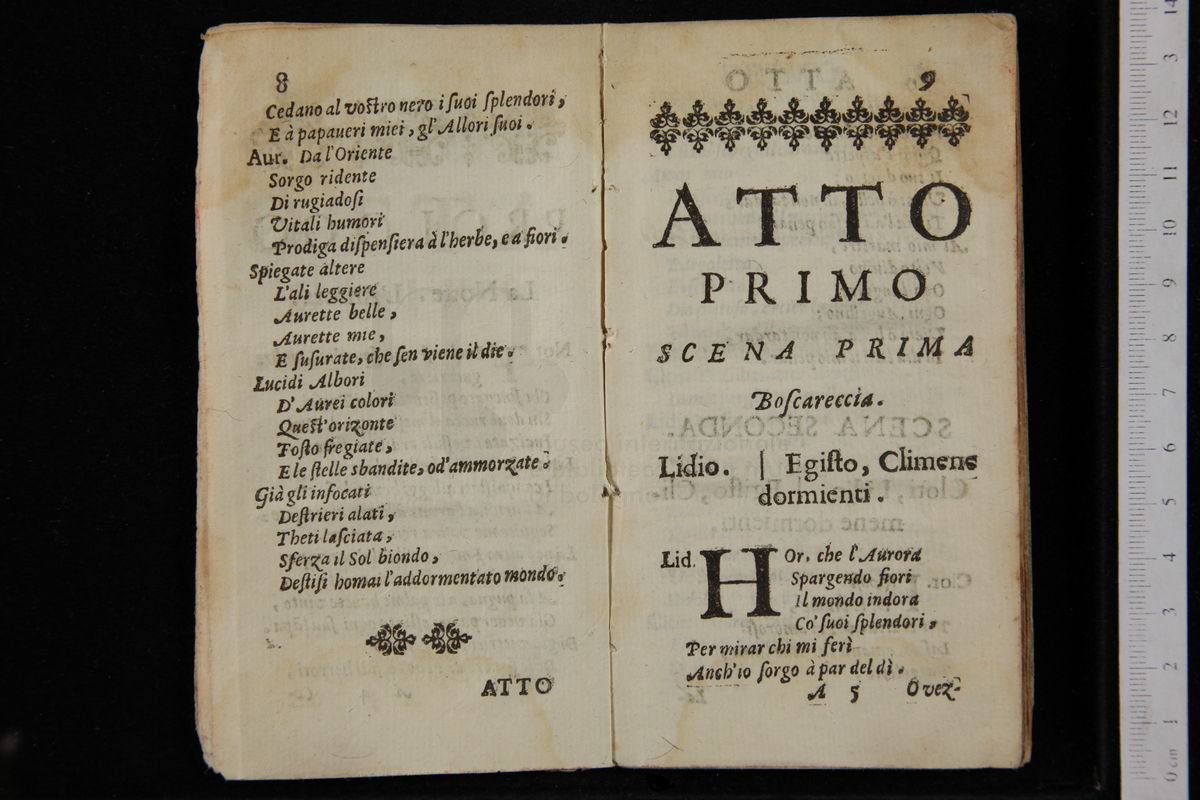 8
Cedano al vostro nero i ſuoi ſplendori,
E à papaueri miei, gl'Allori ſuoi.
Aur. Da l'Oriente
Sorgo ridente
Di rugiadoſi
Vitali humori
Prodiga diſpenſiera à l'herbe, e a fiori.
Spiegate altere
L'ali leggiere
Aurette belle,
Aurette mie,
E ſuſurate, che ſen viene il die.
Lucidi Albori
D'Aurei colori
Quest'orizonte
Toſto fregiate,
E le ſtelle sbandite, od'ammorzate.
Già gli infocati
Deſtrieri alati,
Theti laſciata,
Sferza il Sol biondo,
Deſtiſi homai l'addormentato mondo.
ATTO
9
ATTO
PRIMO
SCENA PRIMA
Boſcareccia.
Lidio. | Egiſto, Climene
dormienti.
Lid. HOr, che l'Aurora
Spargendo fiori
Il mondo indora
Co' ſuoi ſplendori,
Per mirar chi mi ferì
Anch'io ſorgo à par del dì.
A 5 O vez-
14
3
12
11
10
9
8
7
6
5
4
3
2
1
0 cm